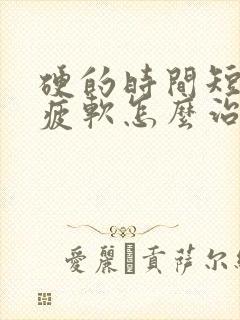 硬的時間短
疲軟怎麼治
愛麗 貢萨尔維